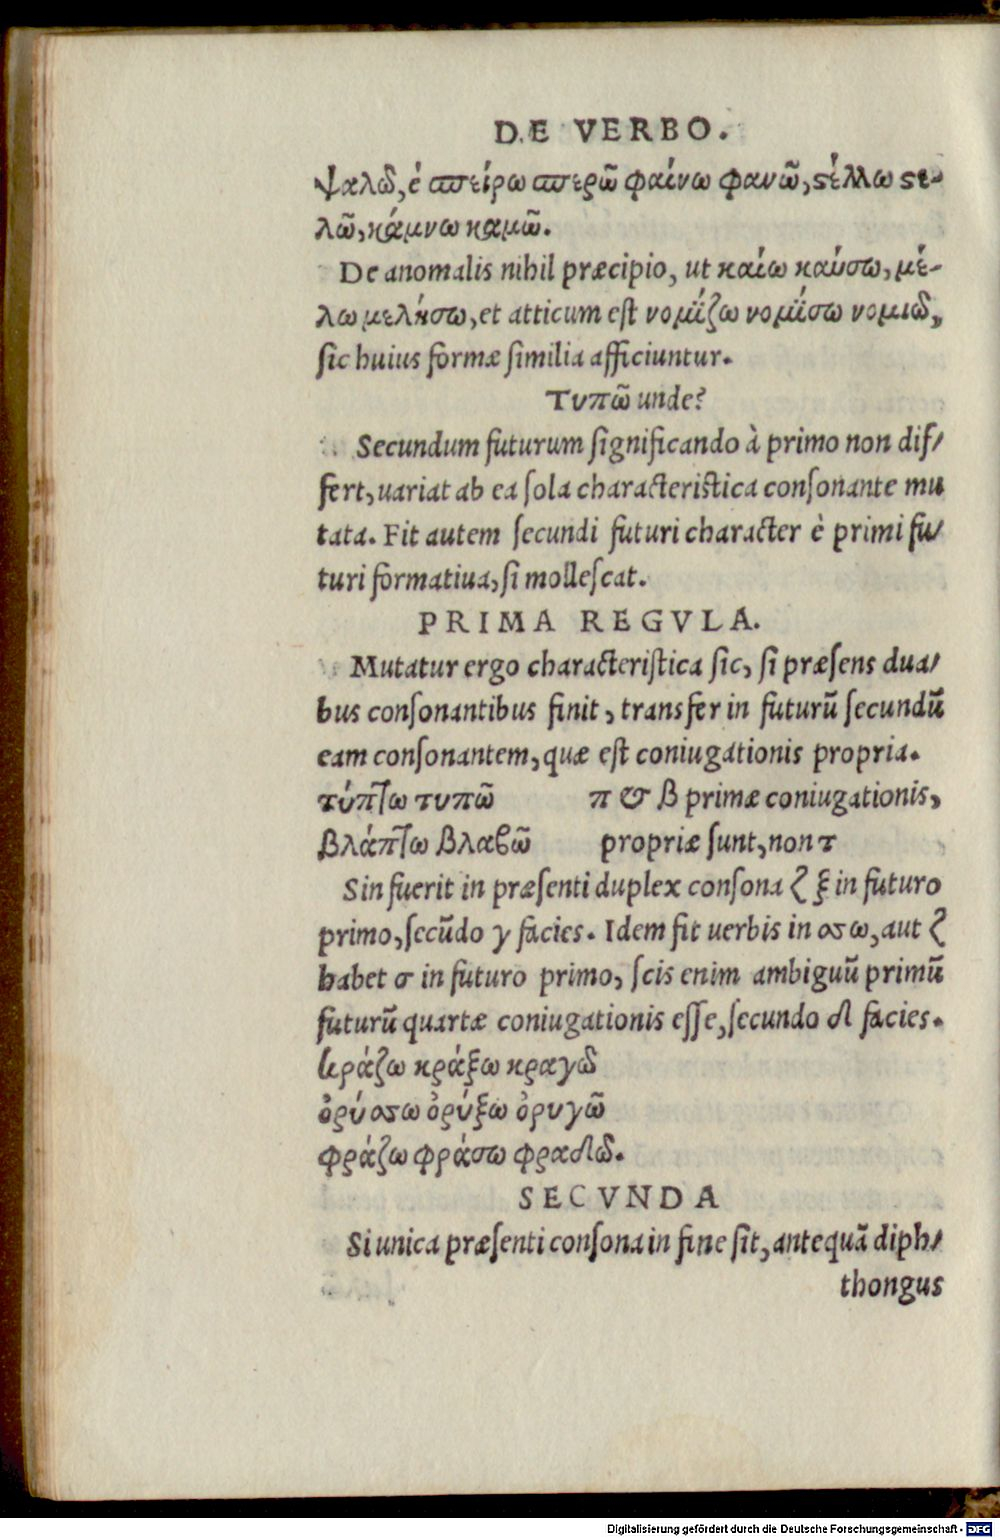 DE VERBO.
ψαλῶ, ἐ σπείρω σπερῶ φαίνω φανῶ, στέλλω στε-
λῶ, κάμνω καμῶ.
De anomalis nihil præcipio, ut καίω καύσω, μέ-
λω μελήσω, et atticum est νομίζω νομίσω νομιῶ,
sic huius formæ similia afficiuntur.
Τυπῶ unde?
Secundum futurum significando à primo non dif/
fert, uariat ab ea sola characteristica consonante mu
tata. Fit autem secundi futuri character è primi fu/
turi formatiua, si mollescat.
PRIMA REGVLA.
Mutatur ergo characteristica sic, si præsens dua/
bus consonantibus finit, transfer in futurū secundū
eam consonantem, quæ est coniugationis propria.
τύπτω τυπῶ π & β primæ coniugationis,
βλάπτω βλαβῶ propriæ sunt, non τ
Sin fuerit in præsenti duplex consona ζ ξ in futuro
primo, secūdo γ facies. Idem fit uerbis in σσω, aut ζ
habet σ in futuro primo, scis enim ambiguū primū
futurū quartæ coniugationis esse, secundo δ facies.
κράζω κράξω κραγῶ
ὀρύσσω ὀρύξω ὀρυγῶ
φράζω φράσω φραδῶ.
SECVNDA
Si unica præsenti consona in fine sit, antequā diph/
thongus
Digitalisierung gefördert durch die Deutsche Forschungsgemeinschaft - DFG